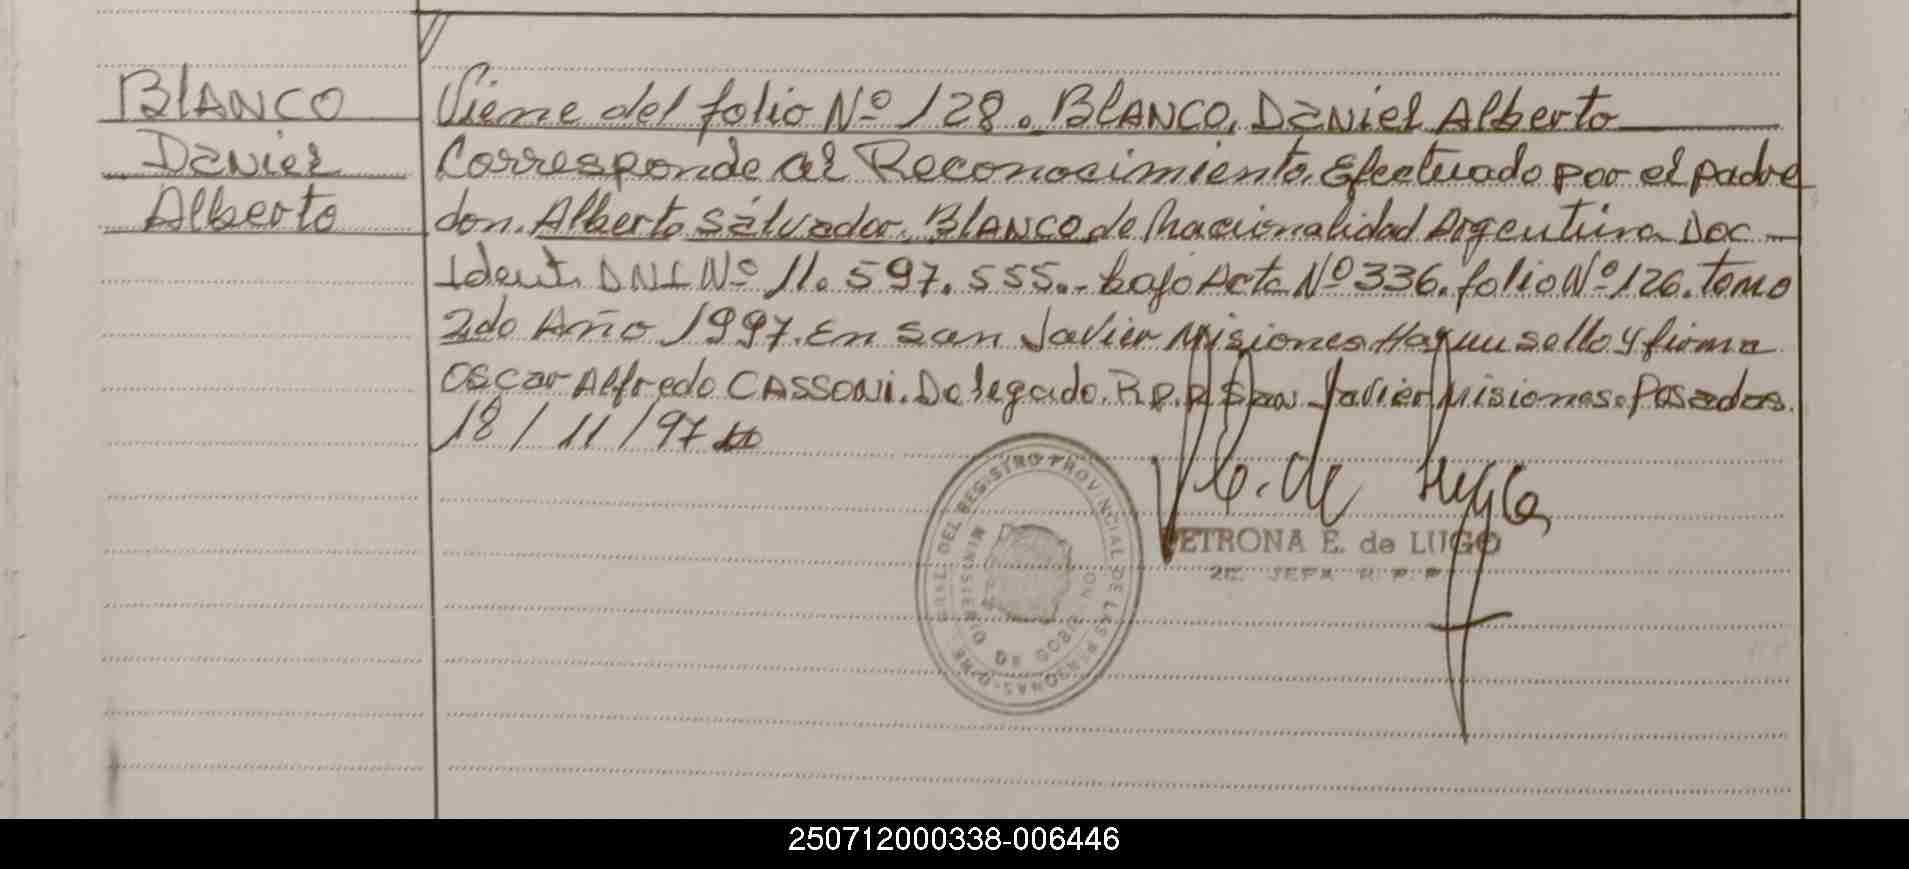 BLANCO
Daniel
Alberto
Viene del folio Nº 128. BLANCO, Daniel Alberto
Corresponde al Reconocimiento. Efectuado por el padre
don. Alberto Salvador. BLANCO de Nacionalidad Argentina Doc
Ident. DNI Nº 11.597.555.- bajo Acta Nº 336. folio Nº 126. tomo
2do Año 1997. En San Javier Misiones Hay un sello y firma
Oscar Alfredo CASSONI. Delegado. R.P.P San Javier Misiones. Posadas.
18/11/97
DEL REGISTRO PROVINCIAL DE LAS PERSONAS
MINISTERIO DE GOBIERNO
PETRONA E. de LUGO
2E. JEFA R. P. P
250712000338-006446